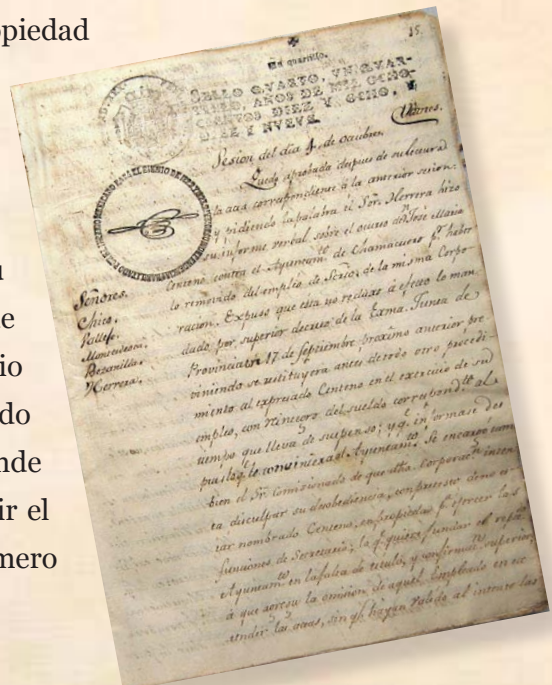 opiedad
io
do
nde
ir el
mero
15.
Un quartillo.
SELLO QVARTO, VN QVAR-
TILLO, AÑOS DE MIL OCHO-
CIENTOS DIEZ Y OCHO, Y
DIEZ Y NVEVE.
Sesion del dia 4 de octubre.
Quedó aprobada despues de su lectura
la acta correspondiente á la anterior sesion
y pidiendo la palabra el Sor. Herrera hizo
su informe verval sobre el ocurso de Dn. José Maria
Centeno contra el Ayuntamto. de Chamacuero pr. haber
lo removido del empleo de Srio. de la misma Corpo
racion. Expuso que esta no reduxo á efecto lo man
dado por superior decreto de la Exma. Junta de
Provincia en 17 de Septiembre proximo anterior pre
viniendo se restituyera antes de todo otro procedi
miento al expresado Centeno en el exercicio de su
empleo, con reintegro del sueldo correspondte. al
tiempo que lleva de suspenso; y q. informase des
pues lo q. le conviniera al Ayuntamto. Se encargó tam
bien el Sr. Comisionado de que dha. Corporacn. inten
ta disculpar su desobediencia, con pretexto de no es
tar nombrado Centeno, en propiedad pa. exercer las
funciones de Secretario, lo q. quiere fundar el
Ayuntamto. en la falta de titulo, y confirmacn. superior,
á que agrega la omision de aquel Empleado en
las actas, sin q. hayan valido al intento las
Señores.
Chico.
Vallejo.
Montesdeoca.
Bezanilla.
Herrera.